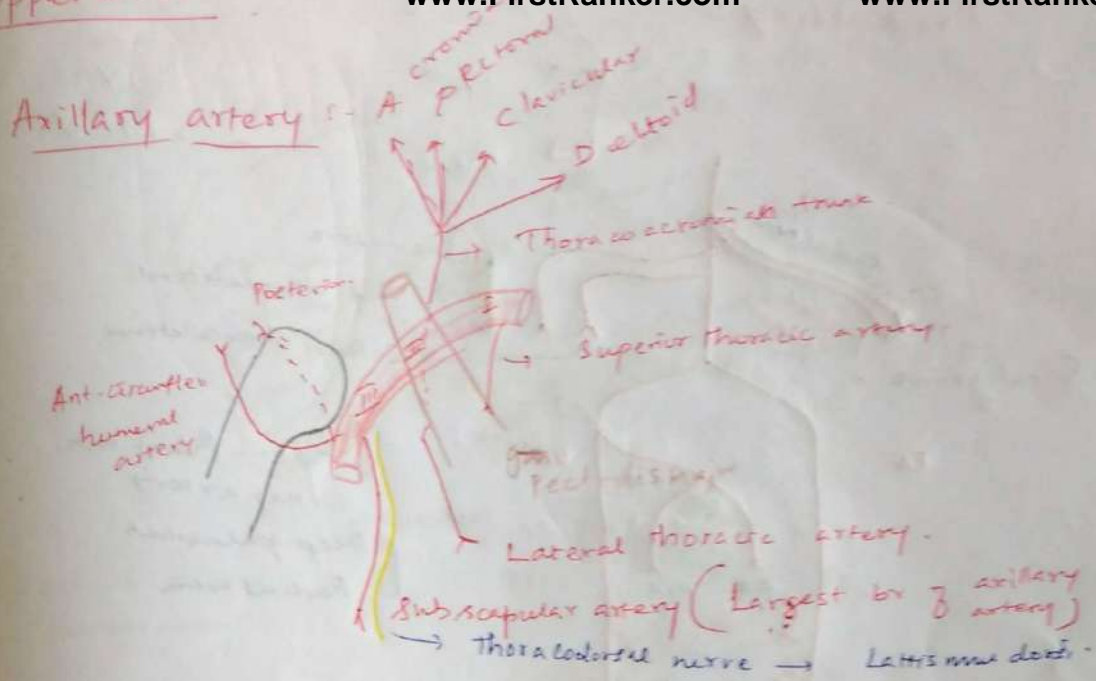 www.FirstRanker.com
www.FirstRanke
Axillary artery :-
A
cromi
Pectoral
Clavicular
Deltoid
Thoraco acromian trunk
Posterior
I
II
III
Superior thoracic artery.
Ant. circumflex
humeral
artery
Lateral thoracic artery.
Subscapular artery (Largest br of axillary
artery)
Thoracodorsal nerve → Lattismus dorsi.